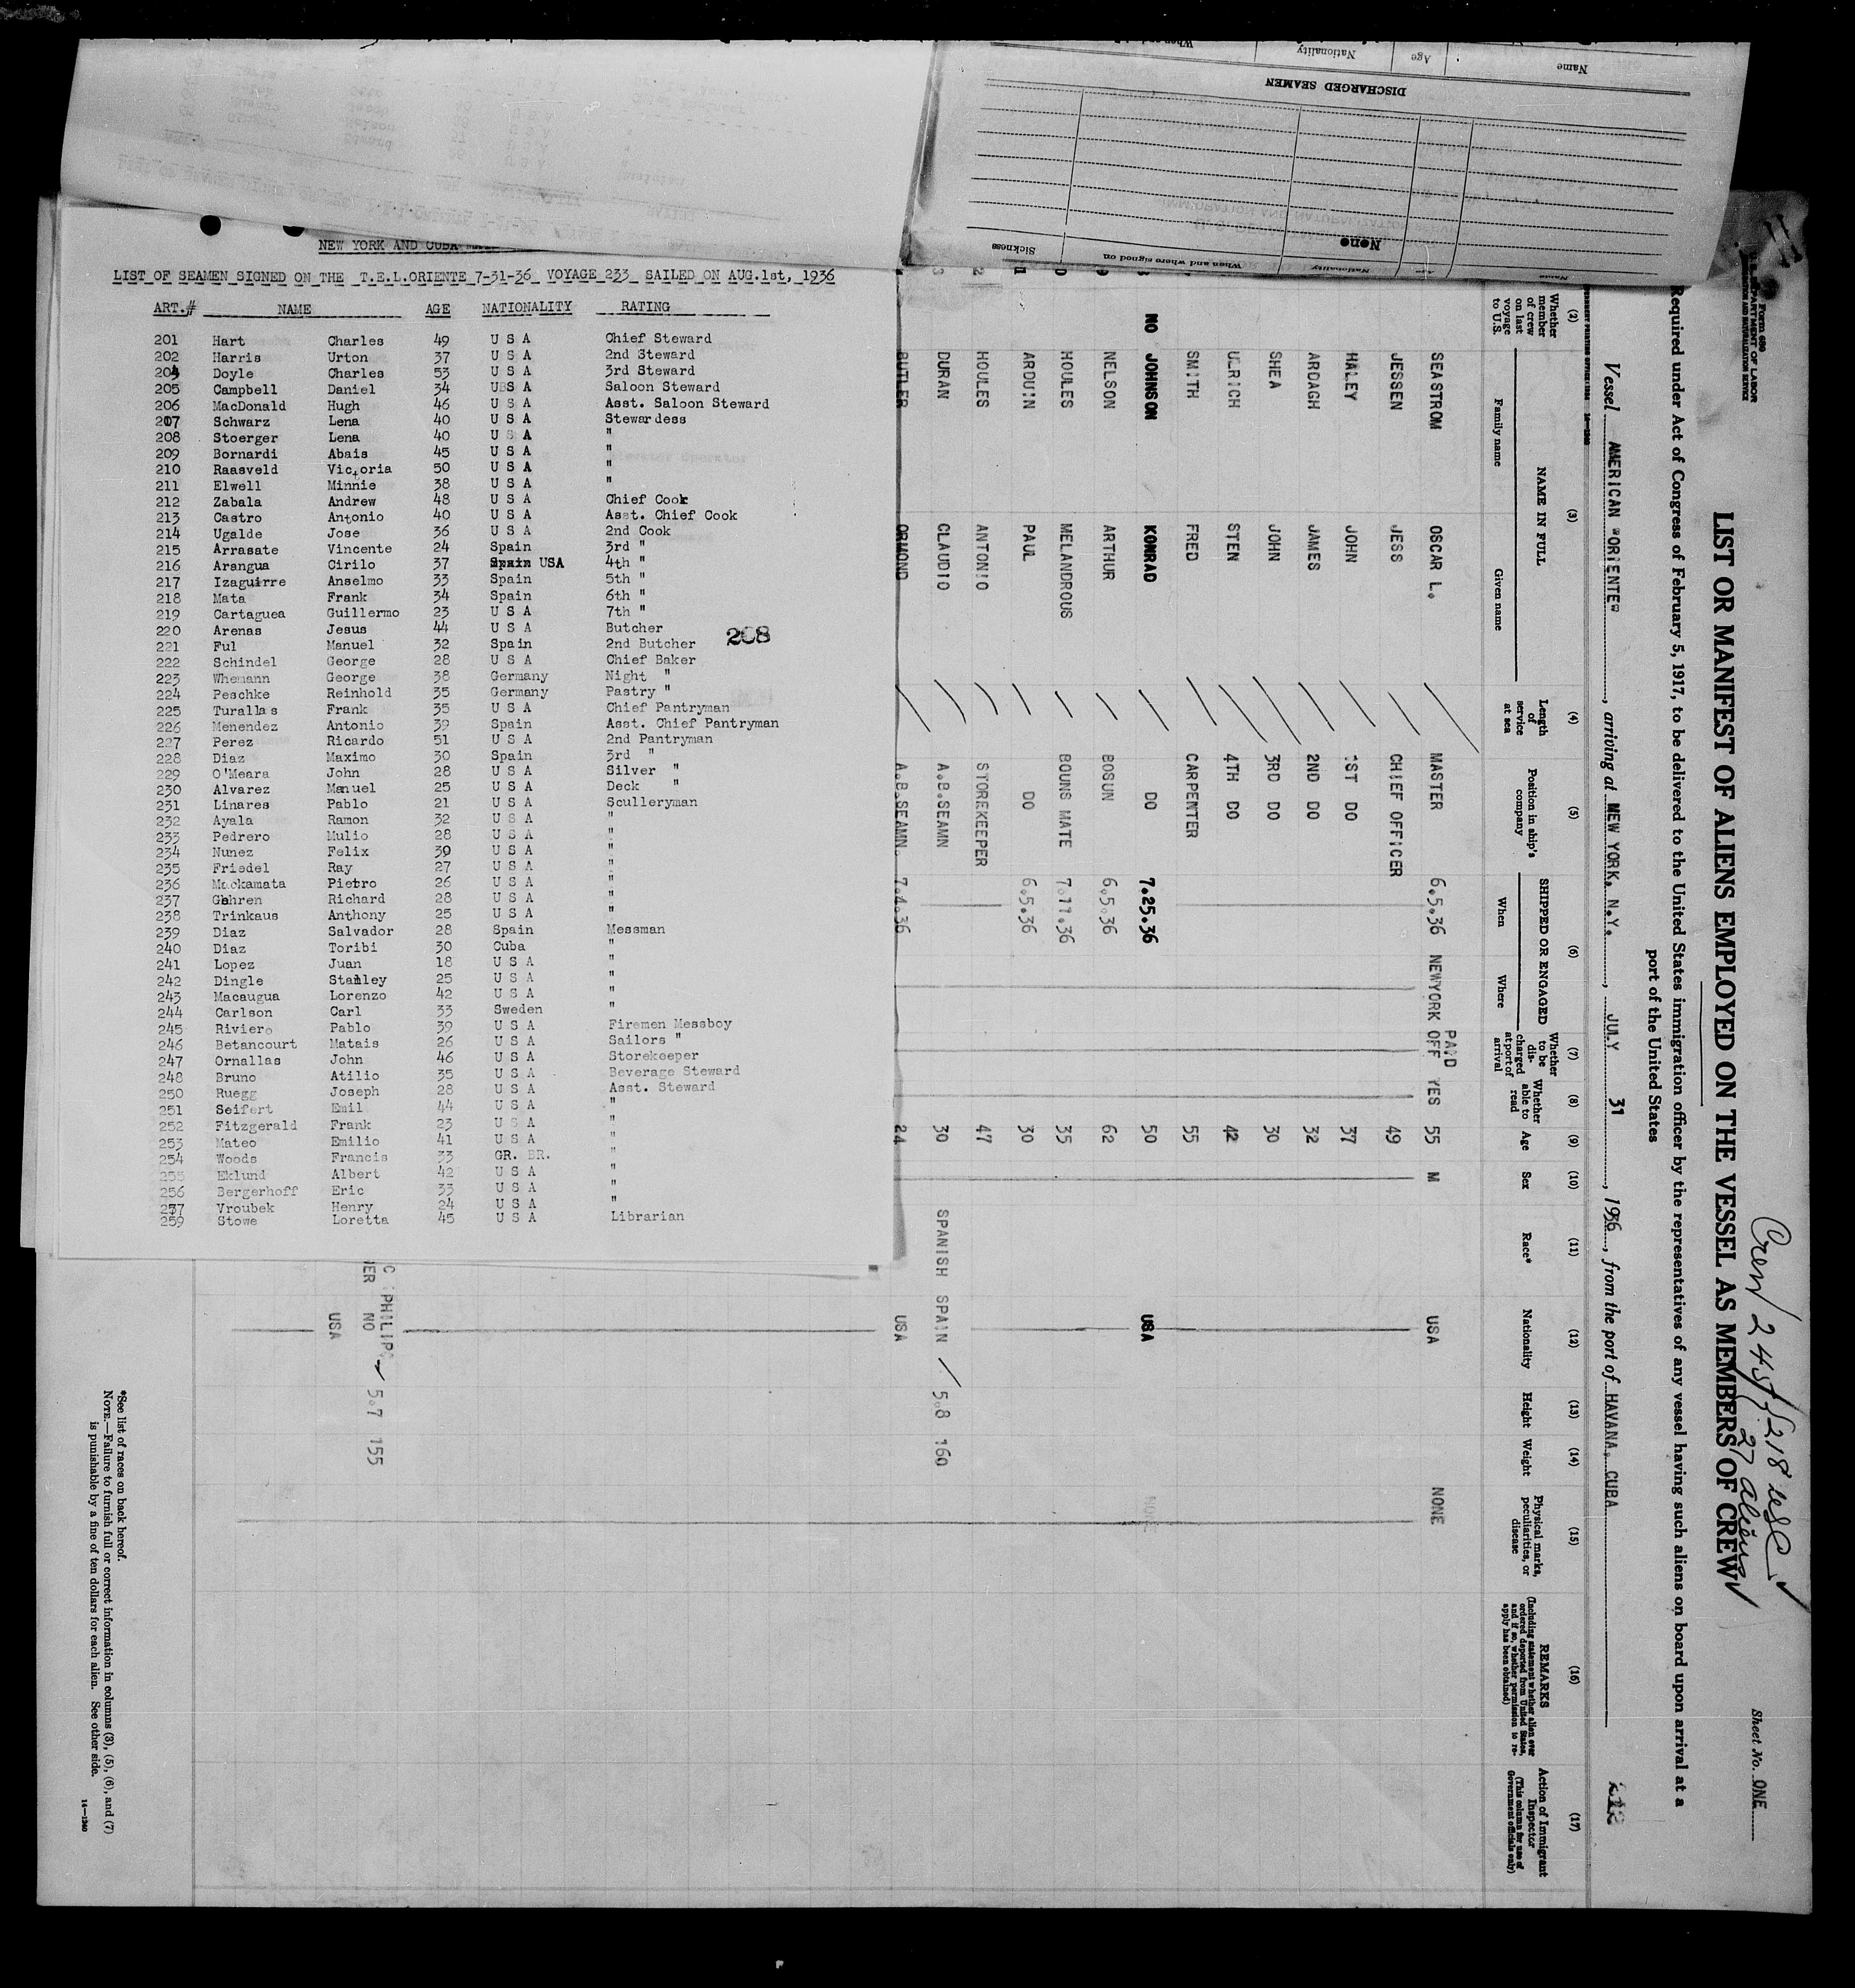 NEW YORK AND CUBA
LIST OF SEAMEN SIGNED ON THE T.E.L.ORIENTE 7-31-36 VOYAGE 233 SAILED ON AUG.1st, 1936
ART.# NAME AGE NATIONALITY RATING
201 Hart Charles 49 U S A Chief Steward
202 Harris Urton 37 U S A 2nd Steward
204 Doyle Charles 53 U S A 3rd Steward
205 Campbell Daniel 34 U S A Saloon Steward
206 MacDonald Hugh 46 U S A Asst. Saloon Steward
207 Schwarz Lena 40 U S A Stewardess
208 Stoerger Lena 40 U S A "
209 Bornardi Abais 45 U S A "
210 Raasveld Victoria 50 U S A "
211 Elwell Minnie 38 U S A "
212 Zabala Andrew 48 U S A Chief Cook
213 Castro Antonio 40 U S A Asst. Chief Cook
214 Ugalde Jose 36 U S A 2nd Cook
215 Arrasate Vincente 24 Spain 3rd "
216 Arangua Cirilo 37 Spain USA 4th "
217 Izaguirre Anselmo 33 Spain 5th "
218 Mata Frank 34 Spain 6th "
219 Cartaguea Guillermo 23 U S A 7th "
220 Arenas Jesus 44 U S A Butcher
208
221 Ful Manuel 32 Spain 2nd Butcher
222 Schindel George 28 U S A Chief Baker
223 Whemann George 38 Germany Night "
224 Peschke Reinhold 35 Germany Pastry "
225 Turallas Frank 35 U S A Chief Pantryman
226 Menendez Antonio 39 Spain Asst. Chief Pantryman
227 Perez Ricardo 51 U S A 2nd Pantryman
228 Diaz Maximo 30 Spain 3rd "
229 O'Meara John 28 U S A Silver "
230 Alvarez Manuel 25 U S A Deck "
231 Linares Pablo 21 U S A Sculleryman
232 Ayala Ramon 32 U S A "
233 Pedrero Mulio 28 U S A "
234 Nunez Felix 39 U S A "
235 Friedel Ray 27 U S A "
236 Mackamata Pietro 26 U S A "
237 Gehren Richard 28 U S A "
238 Trinkaus Anthony 25 U S A "
239 Diaz Salvador 28 Spain Messman
240 Diaz Toribi 30 Cuba "
241 Lopez Juan 18 U S A "
242 Dingle Stanley 25 U S A "
243 Macaugua Lorenzo 42 U S A "
244 Carlson Carl 33 Sweden "
245 Riviero Pablo 39 U S A Firemen Messboy
246 Betancourt Matais 26 U S A Sailors "
247 Ornallas John 46 U S A Storekeeper
248 Bruno Atilio 35 U S A Beverage Steward
250 Ruegg Joseph 28 U S A Asst. Steward
251 Seifert Emil 44 U S A "
252 Fitzgerald Frank 23 U S A "
253 Mateo Emilio 41 U S A "
254 Woods Francis 33 GR. BR. "
255 Eklund Albert 42 U S A "
256 Bergerhoff Eric 33 U S A "
257 Vroubek Henry 24 U S A "
259 Stowe Loretta 45 U S A Librarian
DISCHARGED SEAMEN
Name Age Nationality
Name Age Nationality When and where signed on Sickness
None
Form 680
U.S. DEPARTMENT OF LABOR
IMMIGRATION AND NATURALIZATION SERVICE
Sheet No. ONE
Crew 245 { 218 USC
27 Aliens
LIST OR MANIFEST OF ALIENS EMPLOYED ON THE VESSEL AS MEMBERS OF CREW
Required under Act of Congress of February 5, 1917, to be delivered to the United States immigration officer by the representatives of any vessel having such aliens on board upon arrival at a
port of the United States
Vessel AMERICAN "ORIENTE", arriving at NEW YORK, N.Y., JULY 31, 1936, from the port of HAVANA, CUBA
(2) (3) (4) (5) (6) (7) (8) (9) (10) (11) (12) (13) (14) (15) (16) (17)
Whether member of crew on last voyage to U.S.
NAME IN FULL
Family name Given name
Length of service at sea
Position in ship's company
SHIPPED OR ENGAGED
When Where
Whether to be discharged at port of arrival
Whether able to read
Age
Sex
Race*
Nationality
Height
Weight
Physical marks, peculiarities, or disease
REMARKS
(Including statement whether alien ever ordered deported from United States, and if so, whether permission to reapply has been obtained)
Action of Immigrant Inspector
(This column for use of Government officials only)
SEASTROM OSCAR L. MASTER 6.5.36 NEWYORK PAID OFF YES 55 M USA NONE
JESSEN JESS CHIEF OFFICER 49
HALEY JOHN 1ST DO 37
ARDAGH JAMES 2ND DO 32
SHEA JOHN 3RD DO 30
ULRICH STEN 4TH DO 42
SMITH FRED CARPENTER 55
NO JOHNSON KONRAD DO 7.25.36 50 USA
NELSON ARTHUR BOSUN 6.5.36 62
HOULES MELANDROUS BOUNS MATE 7.11.36 35
ARDUIN PAUL DO 6.5.36 30
HOULES ANTONIO STOREKEEPER 47
DURAN CLAUDIO A.B.SEAMN 30 SPANISH SPAIN 5.8 160
BUTLER ORMOND A.B.SEAMN. 7.4.36 24 USA
PHILIP 5.7 155
NO
USA
*See list of races on back hereof.
NOTE.—Failure to furnish full or correct information in columns (3), (5), (6), and (7)
is punishable by a fine of ten dollars for each alien. See other side.
14—1240